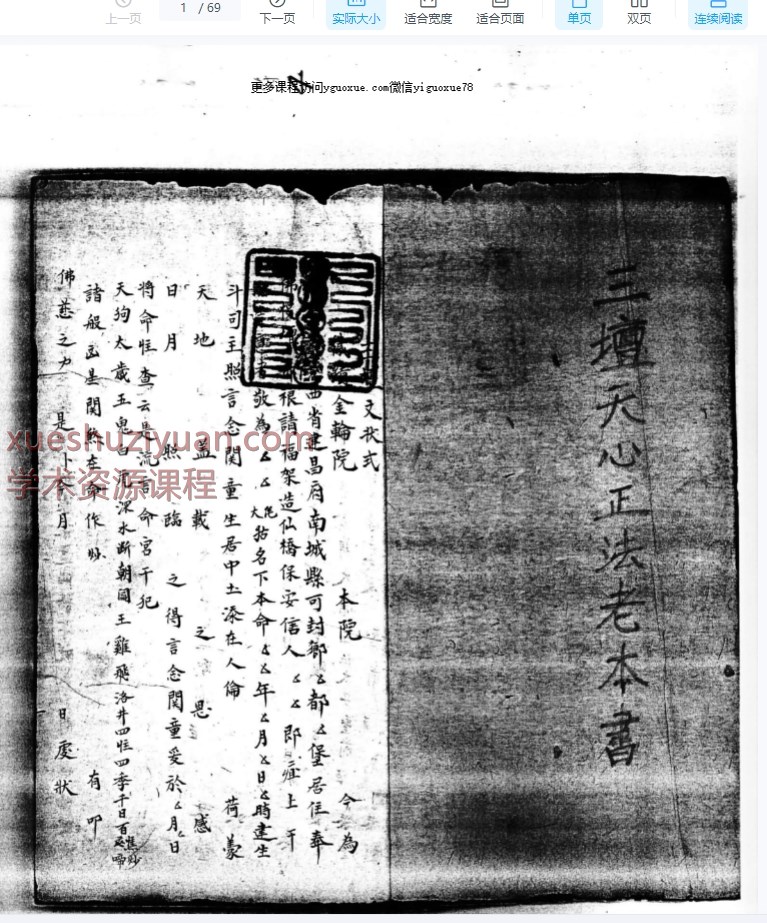 上一页
1 / 69
下一页
实际大小
适合宽度
适合页面
单页
双页
连续阅读
更多课程访问yguoxue.com微信yiguoxue78
三壇天心正法老本書
文狀式
金輪院 本院 今為
省建昌府南城縣可封鄉厶都厶堡居住奉
根請福架造仙橋保安信人厶厶即症上干
敬為厶厶 名下本命厶厶年厶月厶日厶時建生
斗司主照言念閏童生居中土添在人倫 荷蒙
天地盖載之恩感
日月照臨之得言念閏童妥於厶月厶日
將命恠查云是流言命宮干犯
天狗太歲五鬼白虎深水斷朝閻王雞飛洛井四恠四季千日百
諸般凶星関煞在命作 有叩
佛慈之力是卜今月 日處狀
xueshuziyuan.com
学术资源课程